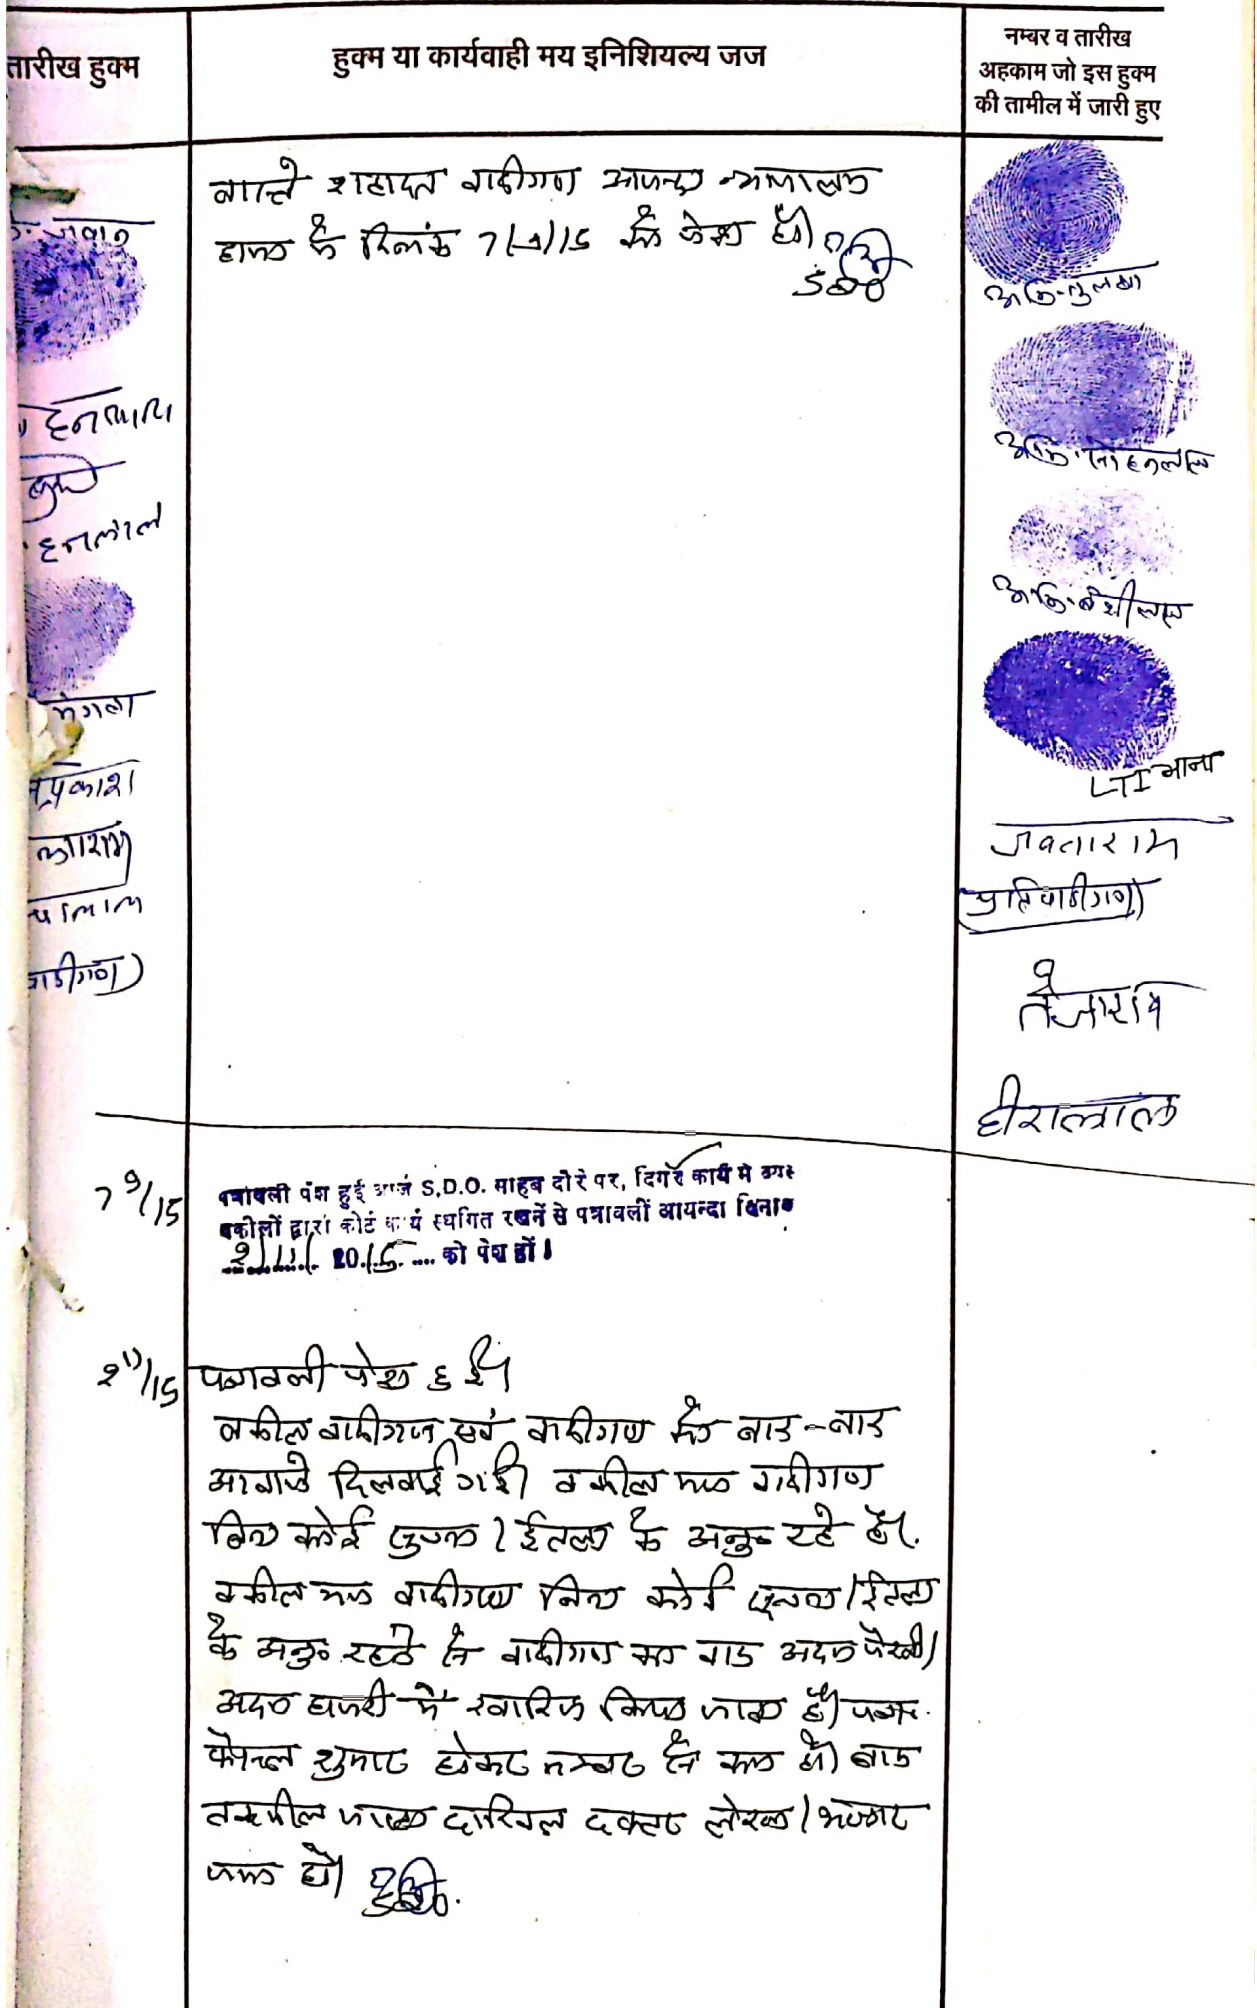 तारीख हुक्म
हुक्म या कार्यवाही मय इनिशियल्य जज
नम्बर व तारीख
अहकाम जो इस हुक्म
की तामील में जारी हुए
वास्ते शहादत वादीगण आयन्दा
के दिनांक 7/9/15 को पेश हो।
SDO
जवान
हनलाल
मंगला
प्रकाश
वादीगण)
अनि. तुलछा
अनि. मोहनलाल
अनि. बंशीलाल
LTI माना
जवताराम
(प्रतिवादीगण)
तेजाराम
हीरालाल
7 9/15
पत्रावली पेश हुई आज S.D.O. साहब दौरे पर, दिगर कार्य मे व्यस्त
वकीलों द्वारा कोर्ट कार्य स्थगित रखनें से पत्रावलीं आयन्दा दिनांक
2/11/ 2015 .... को पेश हों।
2 11/15
पत्रावली पेश हुई।
वकील वादीगण एवं वादीगण को बार-बार
आवाजे दिलवाई गई। वकील मय वादीगण
बिना कोई सुचना/ईतला के अनु० रहे है।
वकील मय वादीगण बिना कोई सूचना/ईतला
के अनु० रहने से वादीगण का वाद अदम पैरवी/
अदम हाजरी में खारिज किया जाता है। पत्रा.
फैसल शुमार होकर नम्बर से कम हो। बाद
तकमील जाब्ता दाखिल दफ्तर लेखा/भण्डार
जमा हो।
SDO.